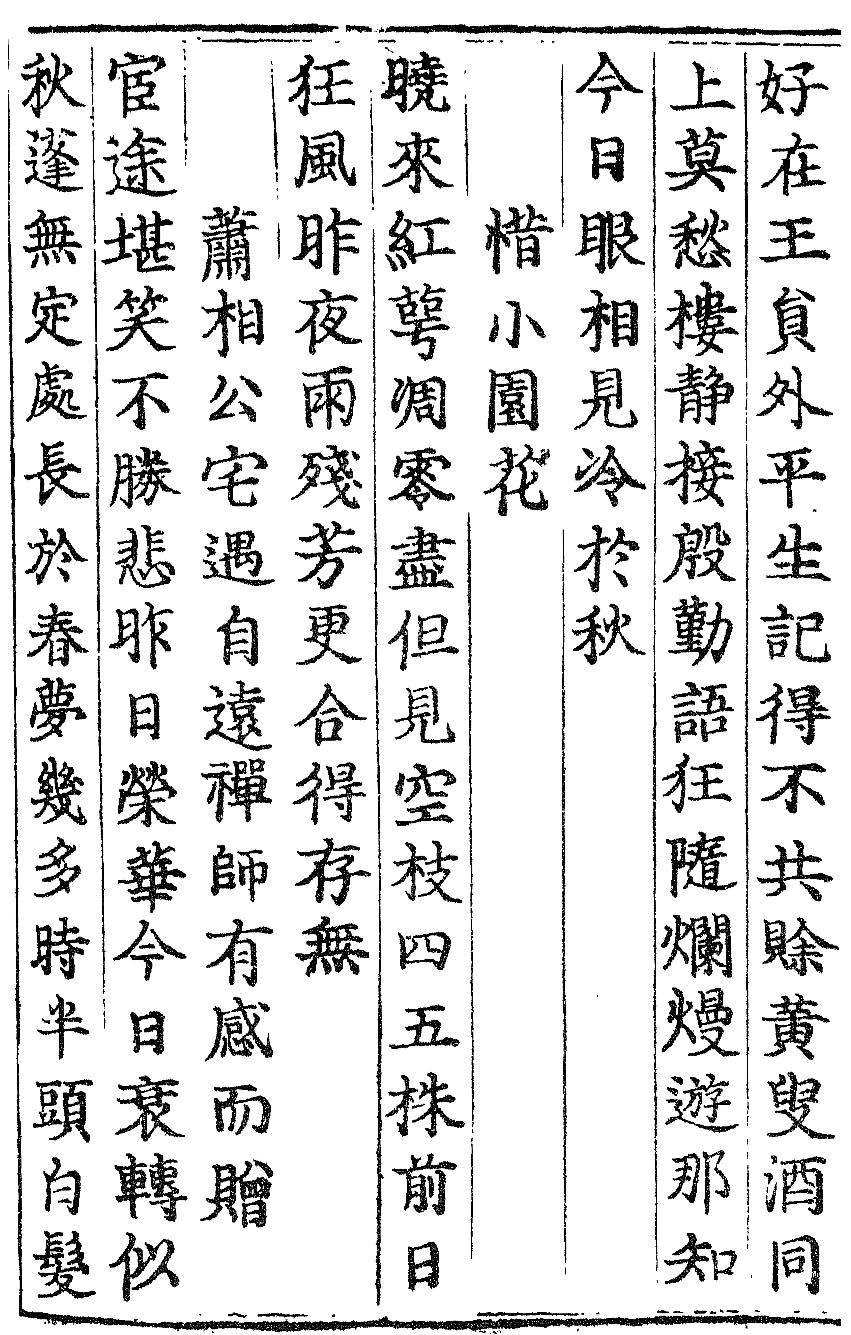 好在王貟外平生記得不共賖黄叟酒同
上莫愁樓静接殷勤語狂隨爛熳遊那知
今日眼相見冷於秋
惜小園花
曉來紅萼凋零盡但見空枝四五株前日
狂風昨夜雨殘芳更合得存無
蕭相公宅遇自遠禪師有感而贈
宦途堪笑不勝悲昨日榮華今日衰轉似
秋蓬無定處長於春夢幾多時半頭白髮